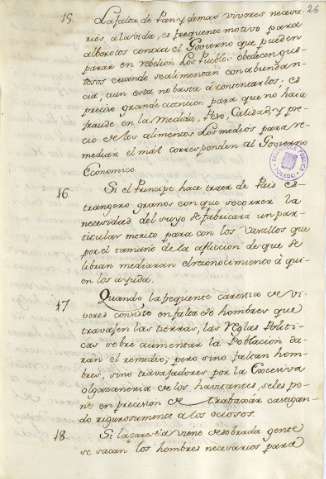 26
15. La falta de Pan y demas viveres necesa
rios, a la vida, es frequente motivo para
alborotos contra el Govierno que pueden
parar en revelion. Los Pueblos obedecen gus
tosos cuando se alimentan con abundan
cia, aun esta no basta a contentarlos. es
precisa grande atencion para que no haia
fraude en la Medida, Peso, Calidad y pre
cio de los alimentos. Los medios para re
mediar el mal corresponden al Govierno
Economico.
16. Si el Principe hace traer de Pais es
trangero granos con que socorrer la
necesidad del suyo se fabricará un par
ticular merito para con los Vasallos que
por el tamaño de la afliccion de que se
libran mediarán el reconocimiento á qui
en los ayuda.
17. Quando la frequente carestia de vi
veres consiste en falta de hombres que
travajen las tierras, las Reglas Politi
cas sobre aumentar la Poblacion da
ran el remedio; pero sino faltan hom
bres, sino travajadores por la Excesiva
olgazaneria de los havitantes, se les po
ne en precision de trabaxar castigan
do rigurosamente a los ociosos.
18. Si la carestia viene de sobrada gente
se sacan los hombres necesarios para